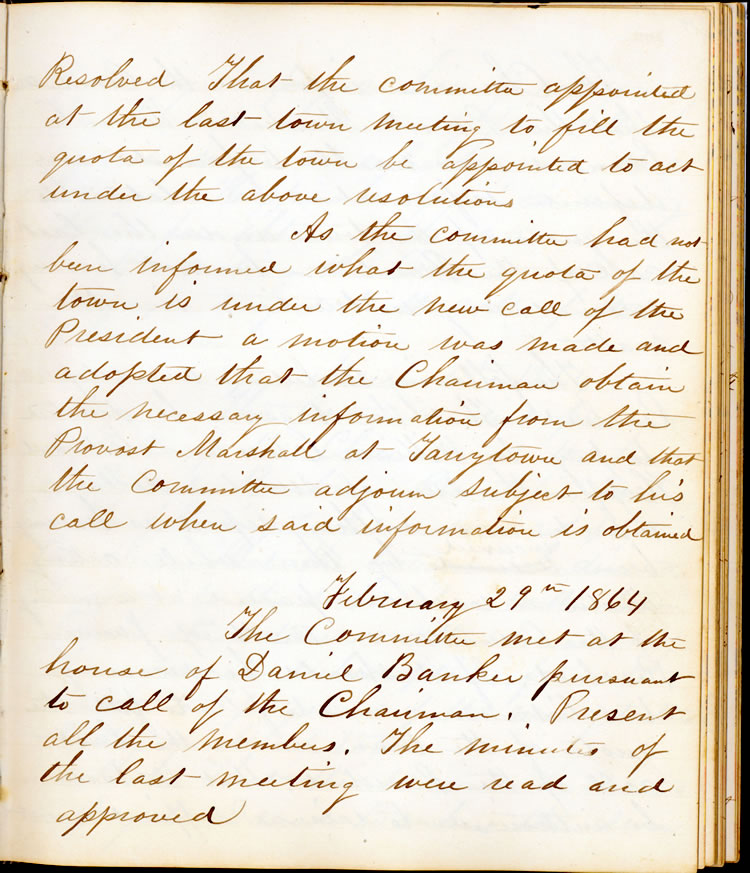 Resolved That the committee appointed
at the last town meeting to fill the
quota of the town be appointed to act
under the above resolutions
As the committee had not
been informed what the quota of the
town is under the new call of the
President a motion was made and
adopted that the Chairman obtain
the necessary information from the
Provost Marshall at Tarrytown and that
the Committee adjourn subject to his
call when said information is obtained
February 29th 1864
The Committee met at the
house of Daniel Banker pursuant
to call of the Chairman. Present
all the members. The minutes of
the last meeting were read and
approved